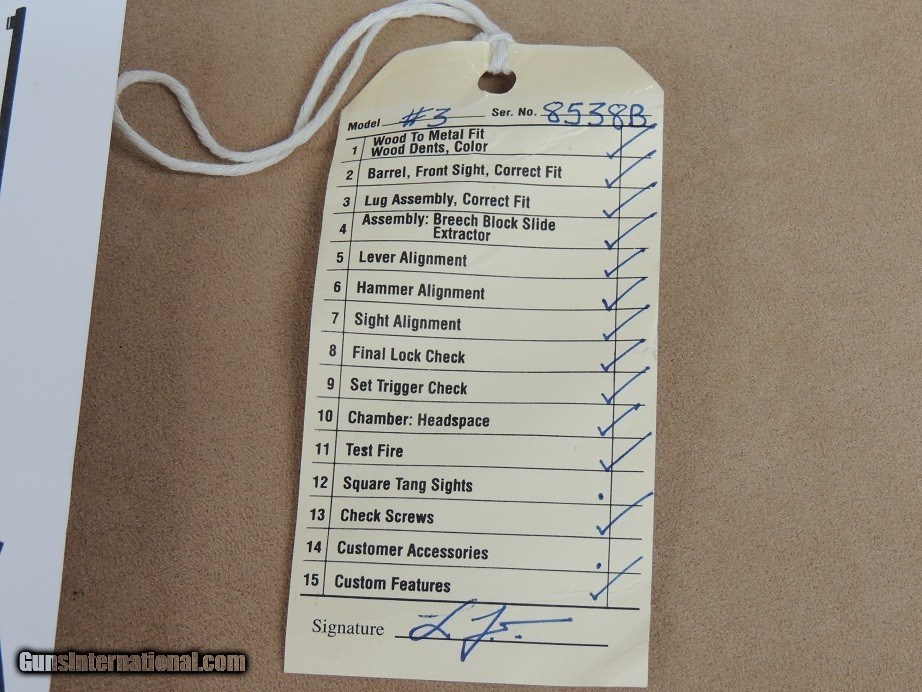 Model #3 Ser. No. 8538B
1 Wood To Metal Fit
Wood Dents, Color ✓
2 Barrel, Front Sight, Correct Fit ✓
3 Lug Assembly, Correct Fit ✓
4 Assembly: Breech Block Slide
Extractor ✓
5 Lever Alignment ✓
6 Hammer Alignment ✓
7 Sight Alignment ✓
8 Final Lock Check ✓
9 Set Trigger Check ✓
10 Chamber: Headspace ✓
11 Test Fire ✓
12 Square Tang Sights .
13 Check Screws ✓
14 Customer Accessories .
15 Custom Features ✓
Signature
GunsInternational.com